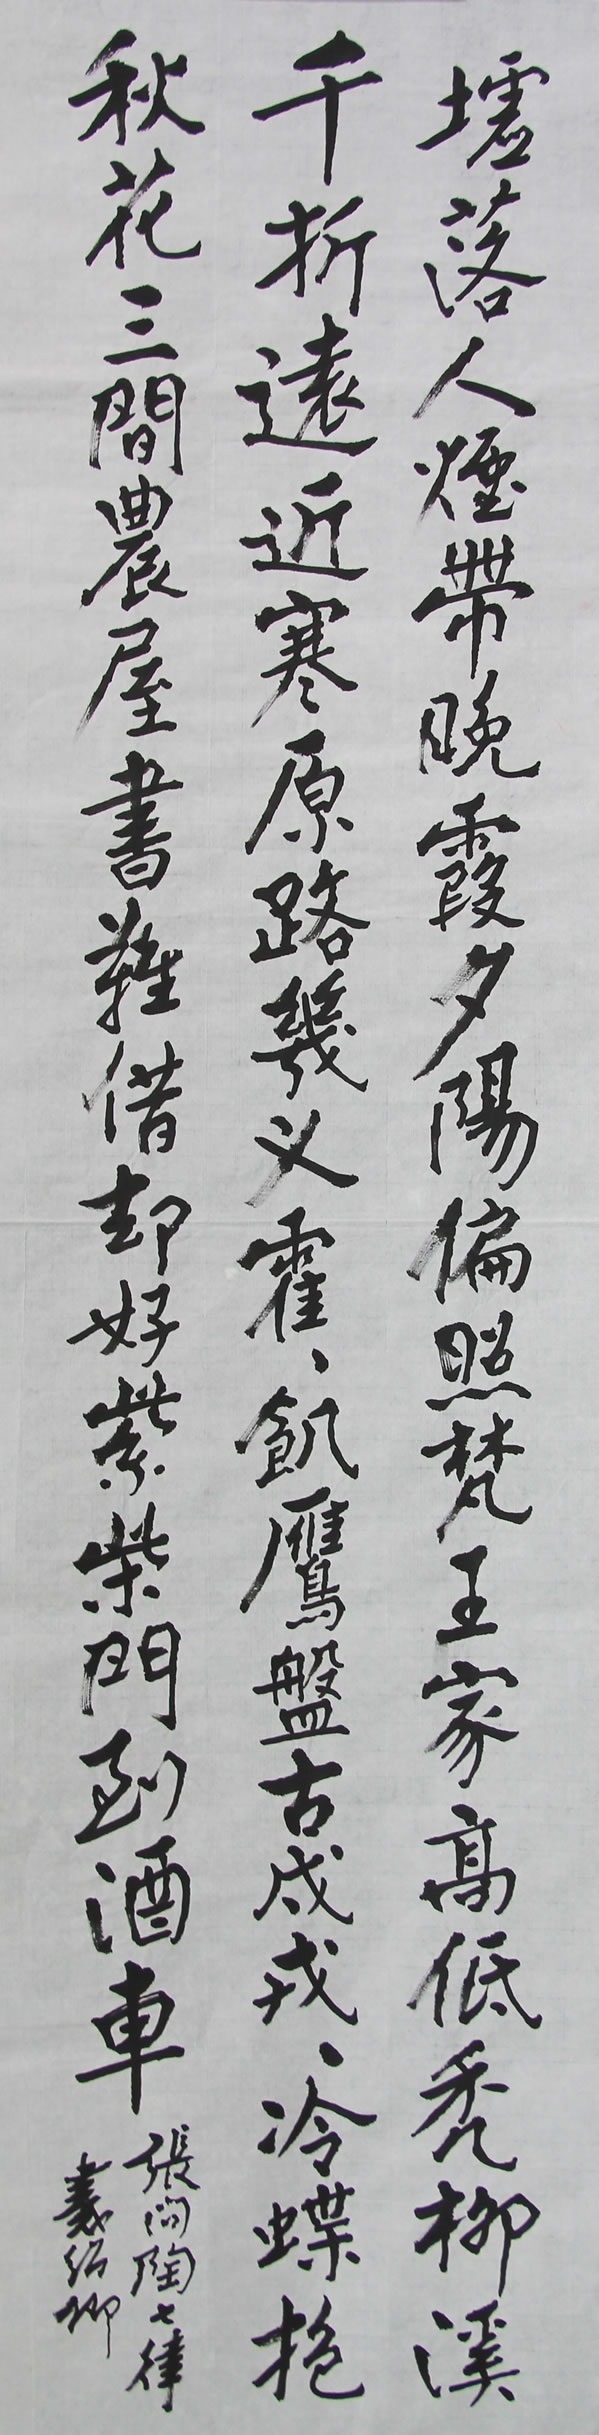 墟落人煙帶晚霞夕陽偏照梵王家高低禿柳溪
千折遠近寒原路幾义霍、飢鷹盤古戍戎、冷蝶抱
秋花三間農屋書難借却好紫柴門到酒車
張問陶七律